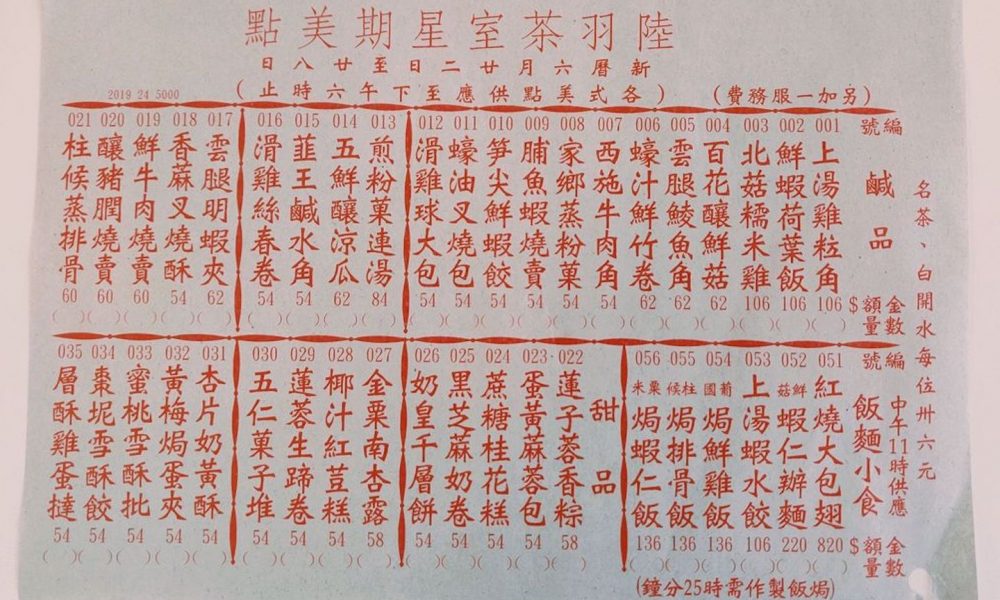 陸羽茶室星期美點
新曆六月廿二日至廿八日
(各式美點供應至下午六時止)
(另加一服務費)
2019 24 5000
名茶、白開水每位卅六元
編號 鹹品 金額$ 數量
001 上湯雞粒角 106
002 鮮蝦荷葉飯 106
003 北菇糯米雞 106
004 百花釀鮮菇 62
005 雲腿鯪魚角 62
006 蠔汁鮮竹卷 62
007 西施牛肉角 54
008 家鄉蒸粉菓 54
009 脯魚蝦燒賣 54
010 笋尖鮮蝦餃 54
011 蠔油叉燒包 54
012 滑雞球大包 54
013 煎粉菓連湯 84
014 五鮮釀涼瓜 62
015 韮王鹹水角 54
016 滑雞絲春卷 54
017 雲腿明蝦夾 62
018 香蔴叉燒酥 54
019 鮮牛肉燒賣 60
020 釀豬膶燒賣 60
021 柱候蒸排骨 60
編號 飯麵小食 金額$ 數量
中午11時供應
051 紅燒大包翅 820
052 鮮菇蝦仁辦麵 220
053 上湯蝦水餃 106
054 葡國焗鮮雞飯 136
055 柱候焗排骨飯 136
056 粟米焗蝦仁飯 136
(焗飯製作需時25分鐘)
甜品
022 蓮子蓉香粽 58
023 蛋黃蔴蓉包 54
024 蔗糖桂花糕 54
025 黑芝蔴奶卷 54
026 奶皇千層餅 54
027 金栗南杏露 58
028 椰汁紅荳糕 54
029 蓮蓉生蹄卷 54
030 五仁菓子堆 54
031 杏片奶黃酥 54
032 黃梅焗蛋夾 54
033 蜜桃雪酥批 54
034 棗坭雪酥餃 54
035 層酥雞蛋撻 54